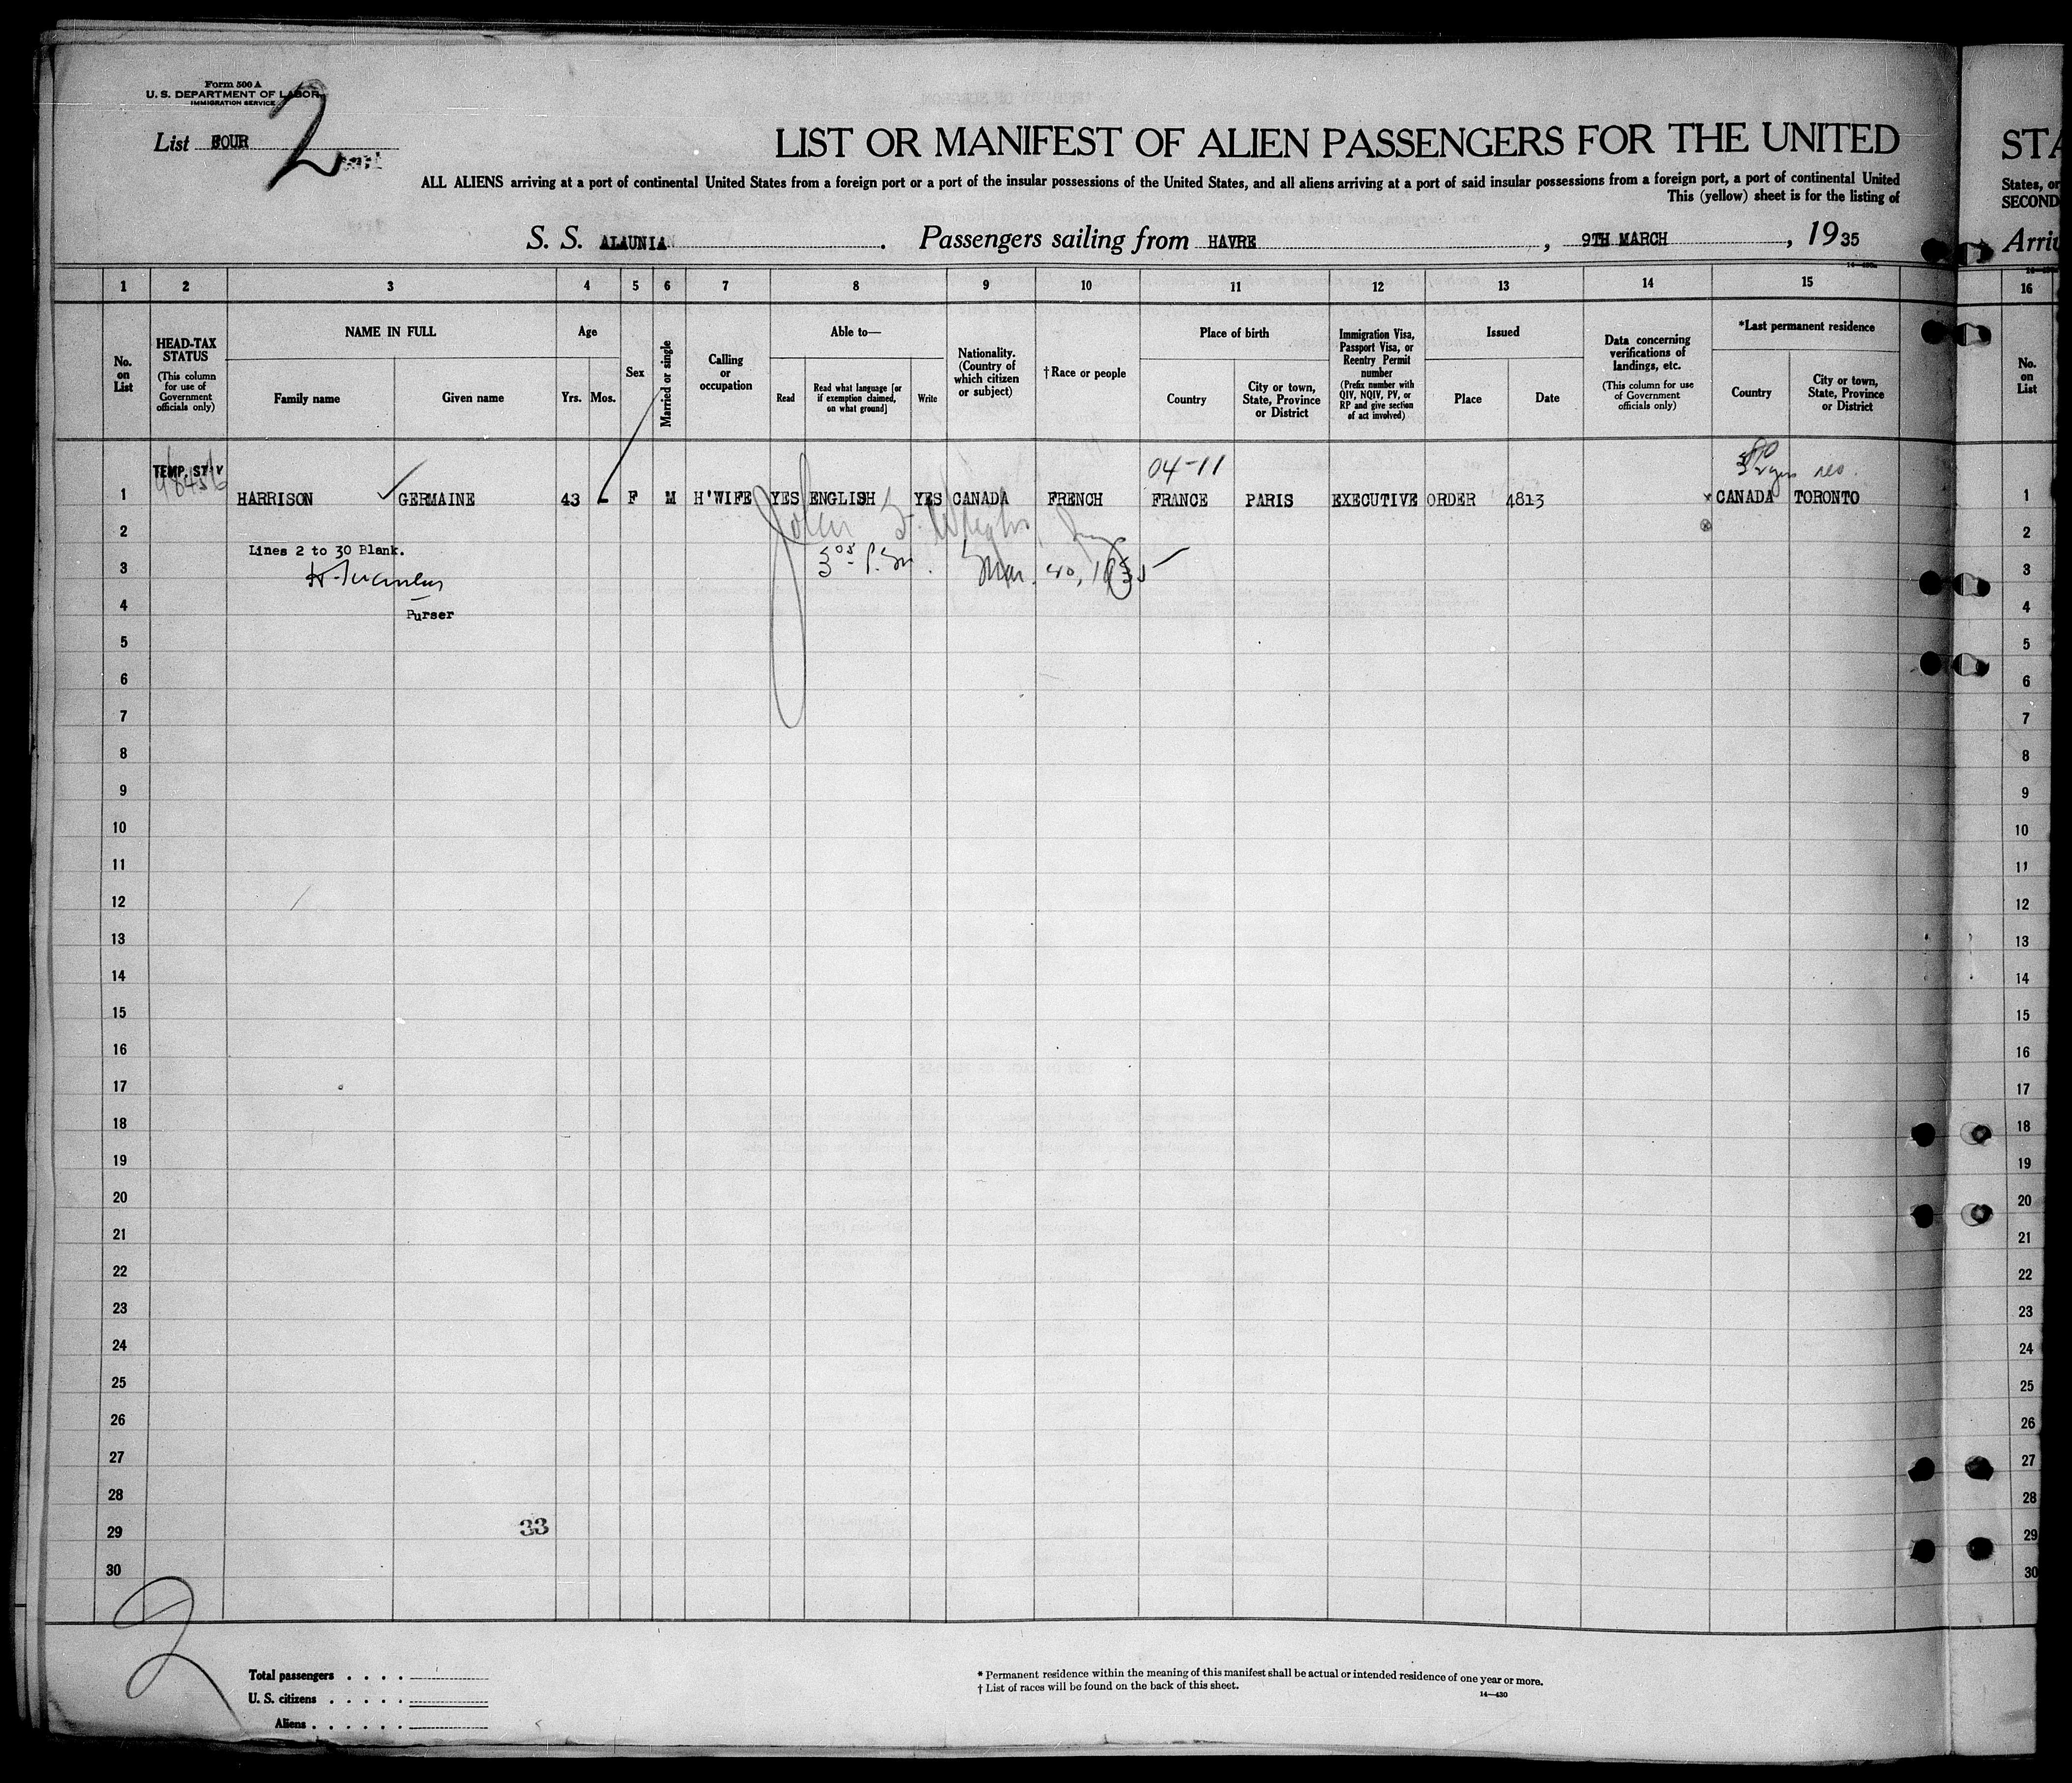 Form 500 A
U. S. DEPARTMENT OF LABOR
IMMIGRATION SERVICE
2
List FOUR
LIST OR MANIFEST OF ALIEN PASSENGERS FOR THE UNITED
STA
ALL ALIENS arriving at a port of continental United States from a foreign port or a port of the insular possessions of the United States, and all aliens arriving at a port of said insular possessions from a foreign port, a port of continental United
States, or
This (yellow) sheet is for the listing of
SECOND
S. S. ALAUNIA . Passengers sailing from HAVRE , 9TH MARCH , 1935
Arri
1 2 3 4 5 6 7 8 9 10 11 12 13 14 15 16
No. on List
HEAD-TAX STATUS
(This column for use of Government officials only)
NAME IN FULL
Family name
Given name
Age
Yrs. Mos.
Sex
Married or single
Calling or occupation
Able to—
Read
Read what language [or if exemption claimed, on what ground]
Write
Nationality. (Country of which citizen or subject)
† Race or people
Place of birth
Country
City or town, State, Province or District
Immigration Visa, Passport Visa, or Reentry Permit number
(Prefix number with QIV, NQIV, PV, or RP and give section of act involved)
Issued
Place
Date
Data concerning verifications of landings, etc.
(This column for use of Government officials only)
*Last permanent residence
Country
City or town, State, Province or District
No. on List
TEMP. STAY
04-11
1 HARRISON GERMAINE 43 - F M H'WIFE YES ENGLISH YES CANADA FRENCH FRANCE PARIS EXECUTIVE ORDER 4813 x CANADA TORONTO 1
2 2
Lines 2 to 30 Blank.
3 3
4 4
Purser
5 5
6 6
7 7
8 8
9 9
10 10
11 11
12 12
13 13
14 14
15 15
16 16
17 17
18 18
19 19
20 20
21 21
22 22
23 23
24 24
25 25
26 26
27 27
28 28
29 33 29
30 30
2
Total passengers . . . .
U. S. citizens . . . . .
Aliens . . . . . .
* Permanent residence within the meaning of this manifest shall be actual or intended residence of one year or more.
† List of races will be found on the back of this sheet.
14—430